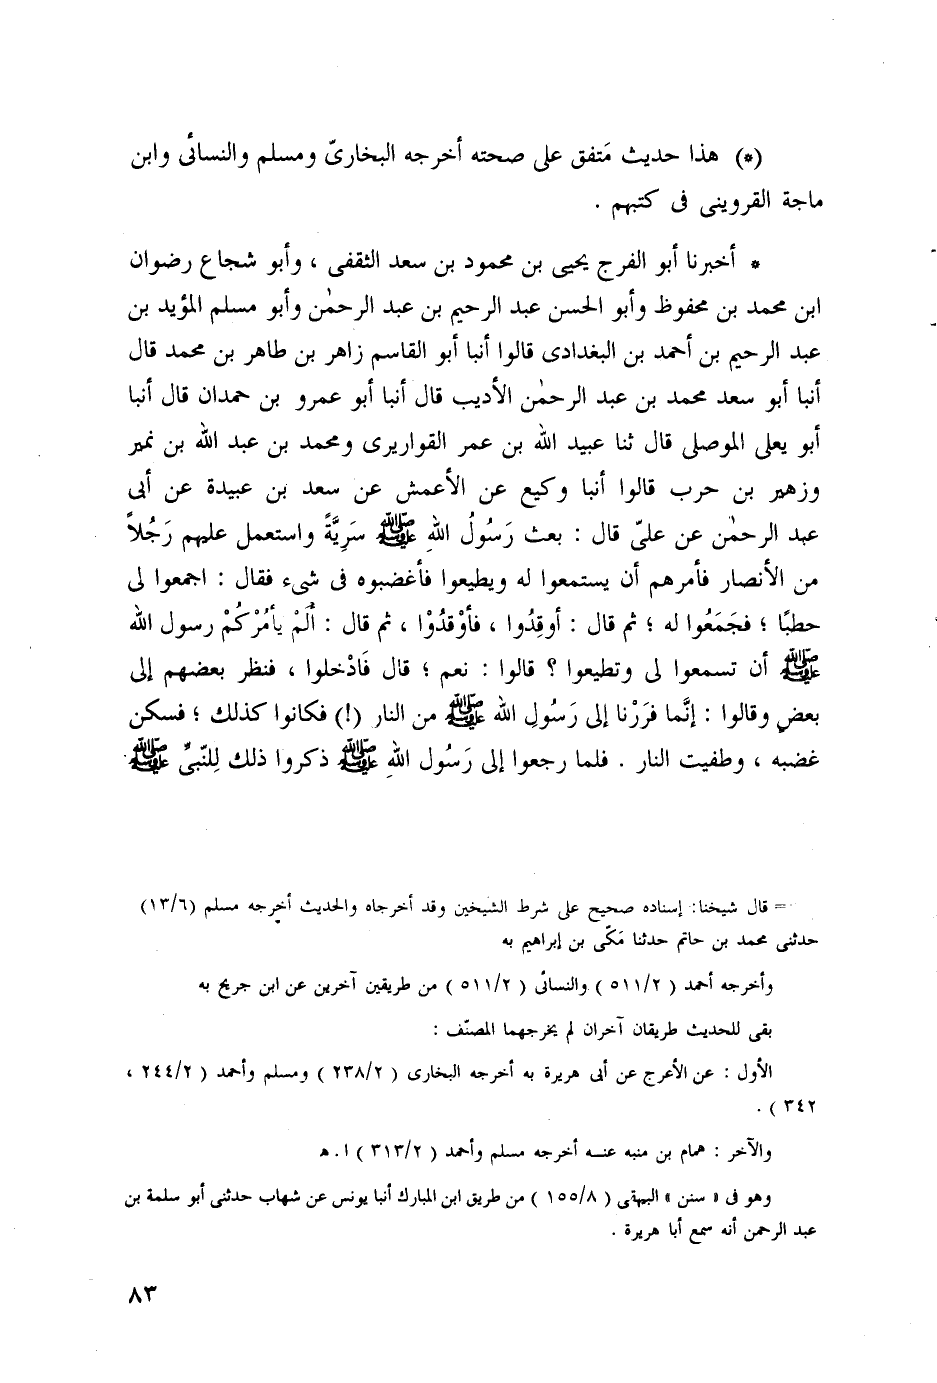 (*) هذا حديث مَتفق على صحته أخرجه البخارىّ ومسلم والنسائى وابن
ماجة القروينى فى كتبهم .
* أخبرنا أبو الفرج يحيى بن محمود بن سعد الثقفى ، وأبو شجاع رضوان
ابن محمد بن محفوظ وأبو الحسن عبد الرحيم بن عبد الرحمٰن وأبو مسلم المؤيد بن
عبد الرحيم بن أحمد بن البغدادى قالوا أنبا أبو القاسم زاهر بن طاهر بن محمد قال
أنبا أبو سعد محمد بن عبد الرحمٰن الأديب قال أنبا أبو عمرو بن حمدان قال أنبا
أبو يعلى الموصلى قال ثنا عبيد الله بن عمر القواريرى ومحمد بن عبد الله بن نمير
وزهير بن حرب قالوا أنبا وكيع عن الأعمش عن سعد بن عبيدة عن أبى
عبد الرحمٰن عن علىّ قال : بعث رَسُولُ اللهِ ﷺ سَرِيَّةً واستعمل عليهم رَجُلاً
من الأنصار فأمرهم أن يستمعوا له ويطيعوا فأغضبوه فى شىء فقال : اجمعوا لى
حطبًا ؛ فجَمَعُوا له ؛ ثم قال : أوقِدُوا ، فأوْقدُوْا ، ثم قال : أَلَمْ يأمُرْكُمْ رسول الله
ﷺ أن تسمعوا لى وتطيعوا ؟ قالوا : نعم ؛ قال فَادْخلوا ، فنظر بعضهم إلى
بعضٍ وقالوا : إنَّما فرَرْنا إلى رَسُولِ الله ﷺ من النار (!) فكانوا كذلك ؛ فسكن
غضبه ، وطفيت النار . فلما رجعوا إلى رَسُول اللهِ ﷺ ذكروا ذلك لِلنّبىِّ ﷺ
= قال شيخنا: إسناده صحيح على شرط الشيخين وقد أخرجاه والحديث أخرجه مسلم (١٣/٦)
حدثنى محمد بن حاتم حدثنا مَكّى بن إبراهيم به
وأخرجه أحمد ( ٥١١/٢ ) والنسائى ( ٥١١/٢ ) من طريقين آخرين عن ابن جريج به
بقى للحديث طريقان آخران لم يخرجهما المصنّف :
الأول : عن الأعرج عن أبى هريرة به أخرجه البخارى ( ٢٣٨/٢ ) ومسلم وأحمد ( ٢٤٤/٢ ،
٣٤٢ ) .
والآخر : همام بن منبه عنـه أخرجه مسلم وأحمد ( ٣١٣/٢ ) ا . هـ
وهو فى « سنن » البيهقى ( ١٥٥/٨ ) من طريق ابن المبارك أنبا يونس عن شهاب حدثنى أبو سلمة بن
عبد الرحمن أنه سمع أبا هريرة .
٨٣